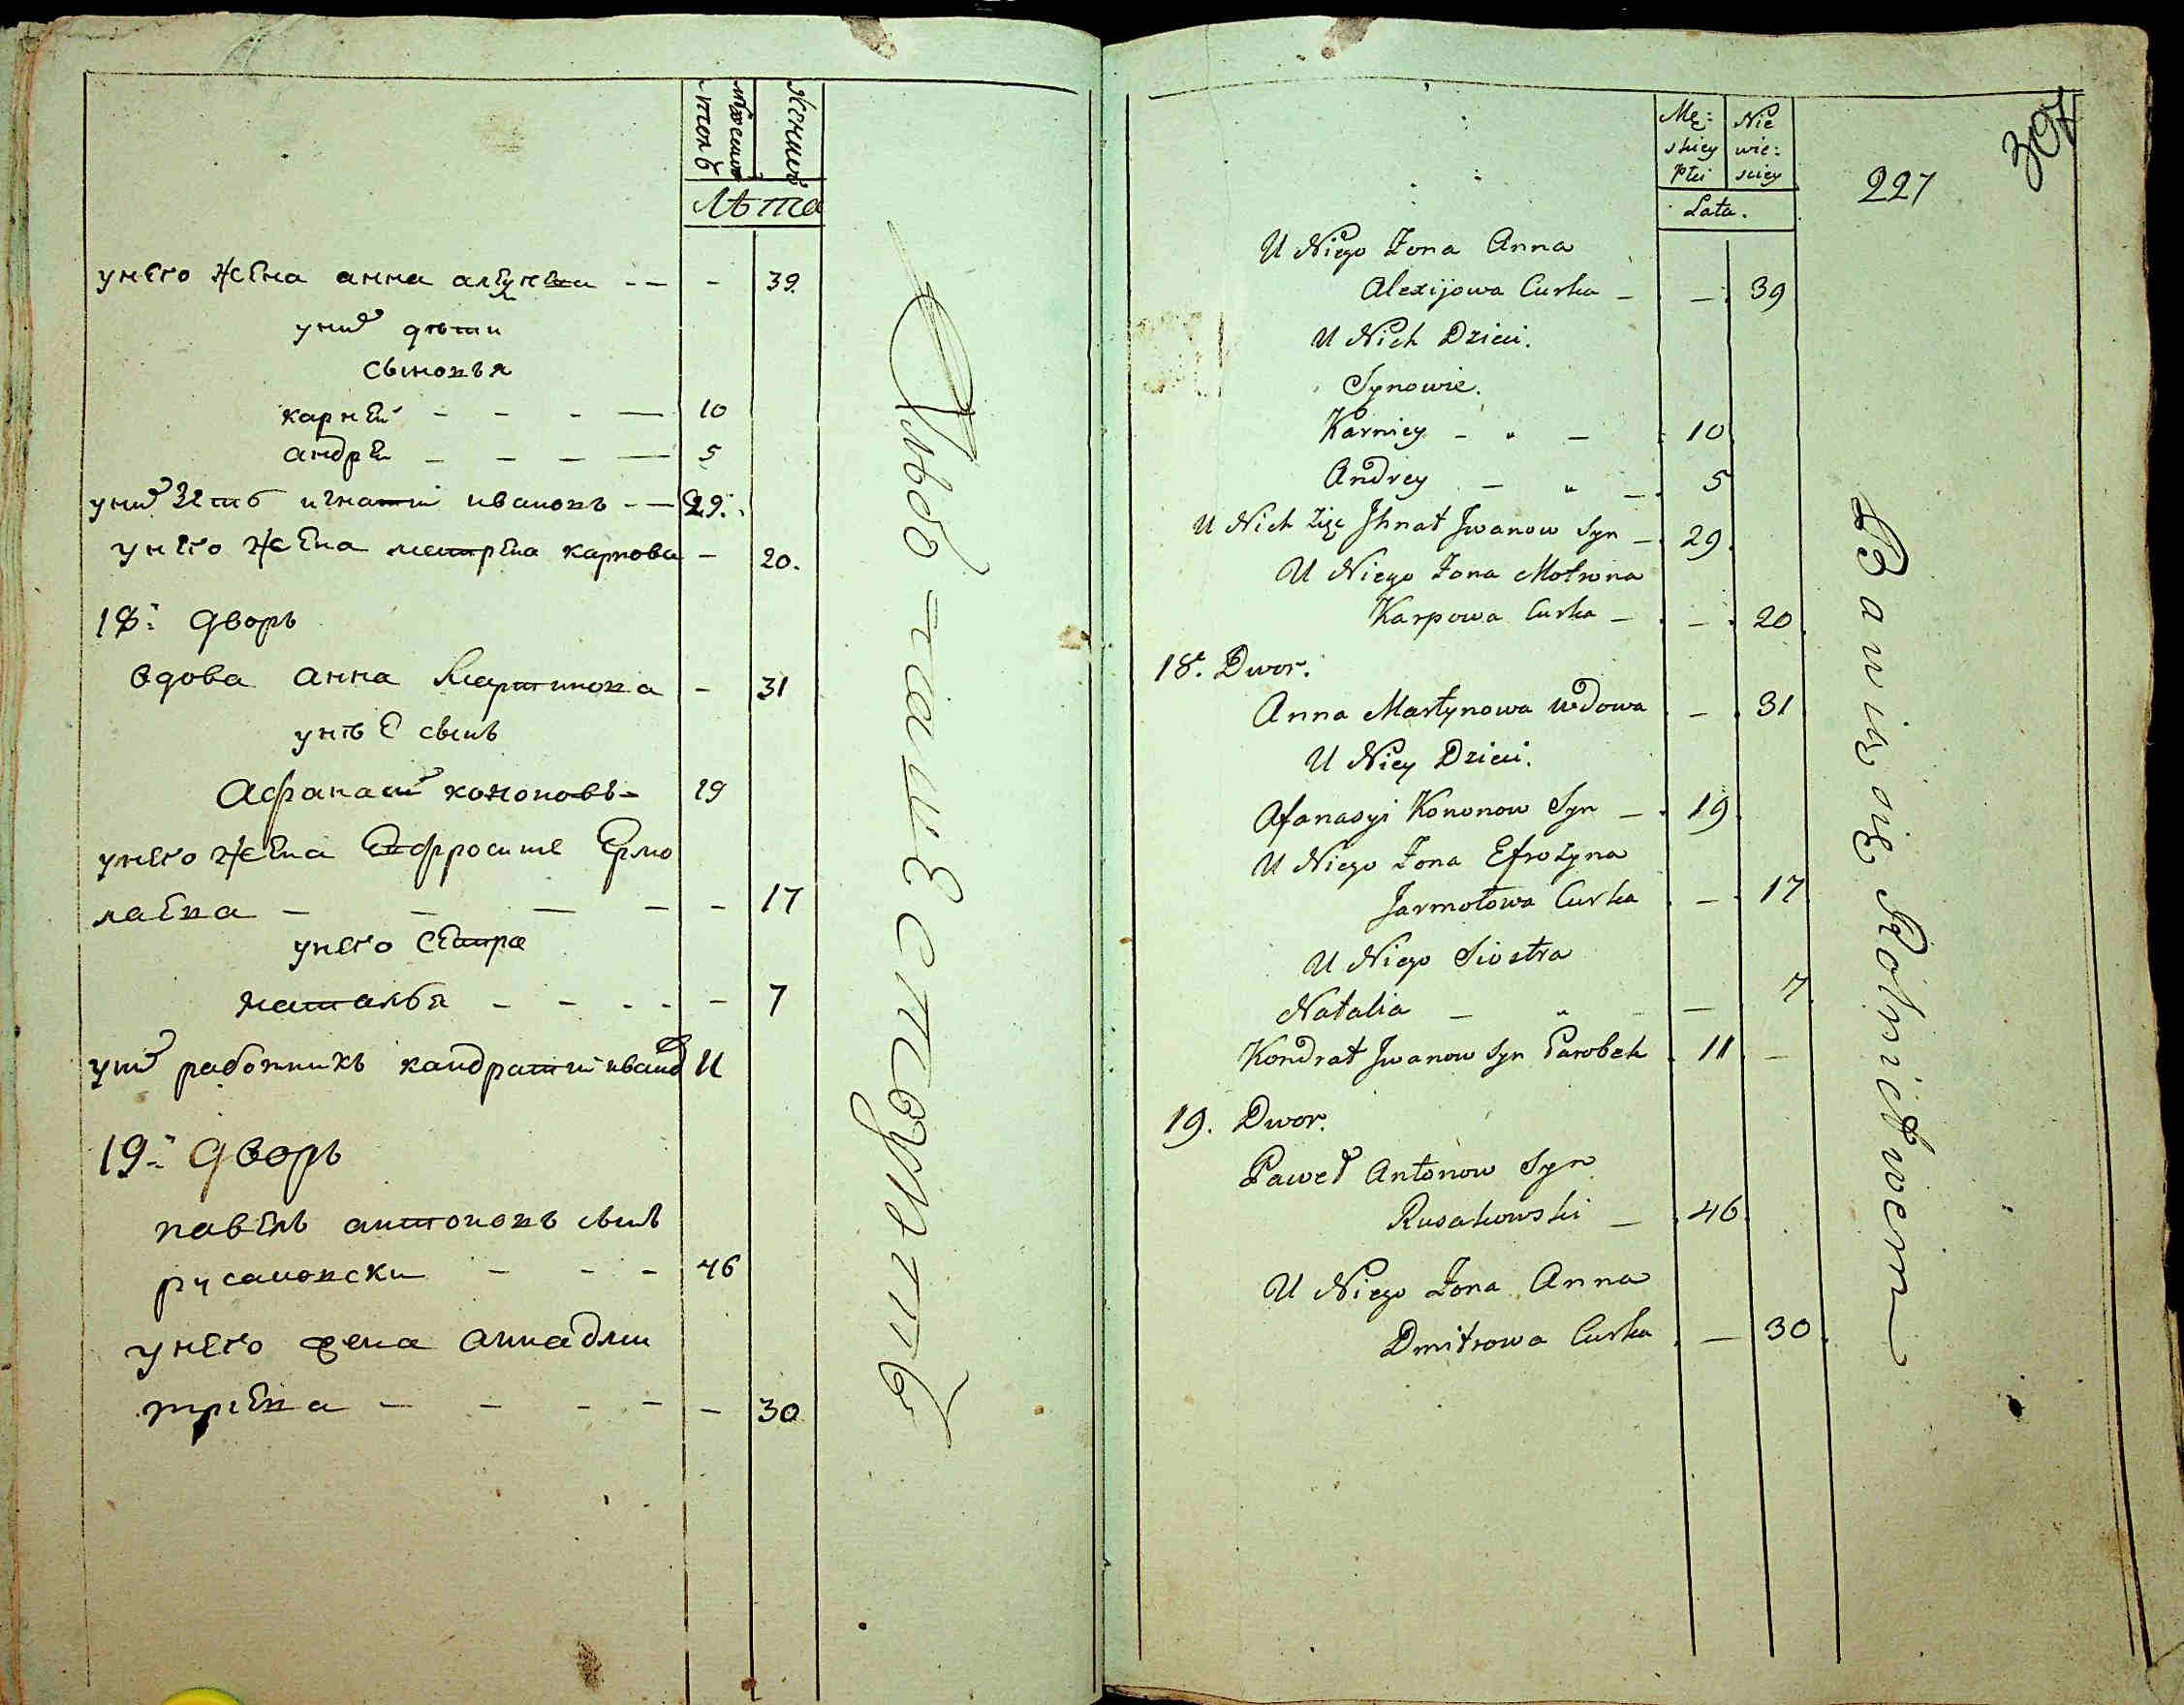 мужескъ
полъ
женскъ
лѣта
унего жена анна алексѣева - - - 39.
унихъ дѣти
сыновъя
карнѣй - - - — 10
андрѣй - - - — 5
унихъ зять игнатій ивановъ - — 29.
унего жена матрена карпова - 20.
18й дворъ
вдова анна мартинова - 31
унѣе сынъ
Афанасій кононовъ - 19
унего жена Евфросинье Ермо
лаева - - — - - 17
унего сестра
наталья - - - - - 7
унихъ работникъ кандратій иванов 11
19й дворъ
павелъ антоновъ сынъ
русаковски - - - 46
унего жена анна дми
триева - - - - - 30
Męz:
skiey
Płci
Nie
wie:
sciey
Lata.
227
307
U Niego Zona Anna
Alexijowa Curka - - 39
U Nich Dzieci.
Synowie.
Karniey - " - 10
Andrey - " - 5
U Nich Zięc Jhnat Jwanow Syn - 29
U Niego Zona Motrona
Karpowa Curka - - 20
18. Dwor.
Anna Martynowa wdowa - 31
U Niey Dzieci.
Afanasyi Kononow Syn - 19
U Niego Zona Efrozyna
Jarmołowa Curka - 17
U Niego Siostra
Natalia - " - — 7
Kondrat Jwanow Syn Parobek 11 -
19. Dwor.
Paweł Antonow Syn
Rusakowski - 46
U Niego Zona Anna
Dmitrowa Curka - 30